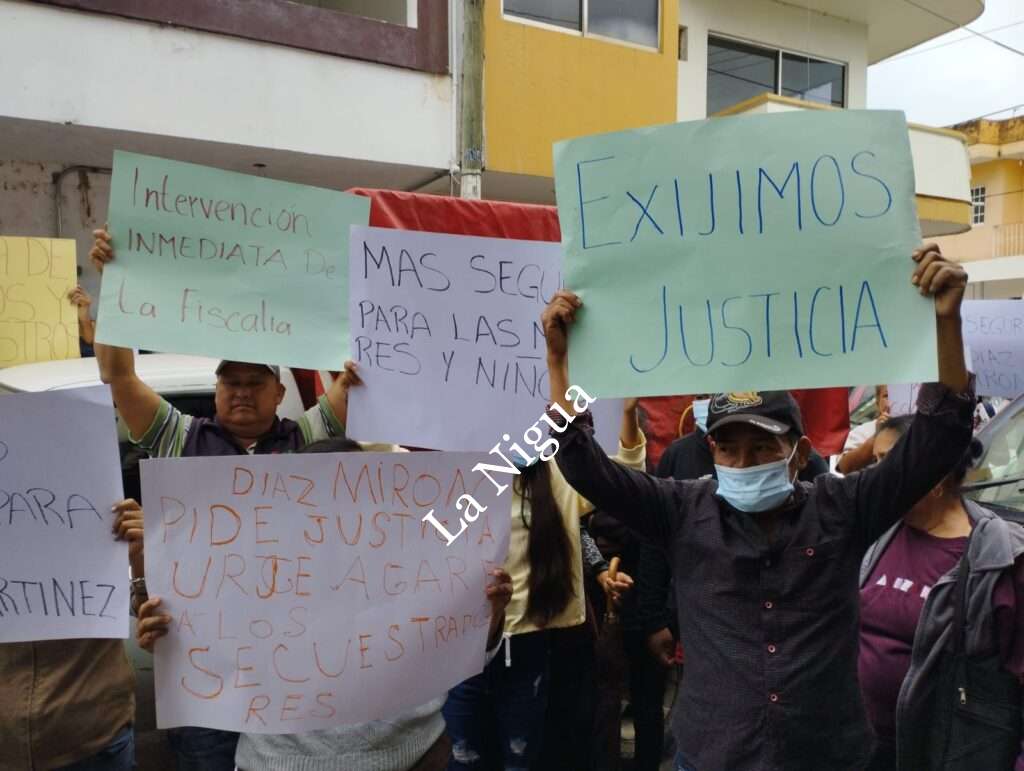 A DE
OS Y
STRO
Intervención
INMEDIATA De
La Fiscalia
MAS SEGU
PARA LAS
RES Y NIÑO
EXIJIMOS
JUSTICIA
SEGUR
DIAZ
RON
PARA
RTINEZ
DIAZ MIRON
PIDE JUSTICIA
URJE AGARR
A LOS
SECUESTRADO
RES
La Nigua